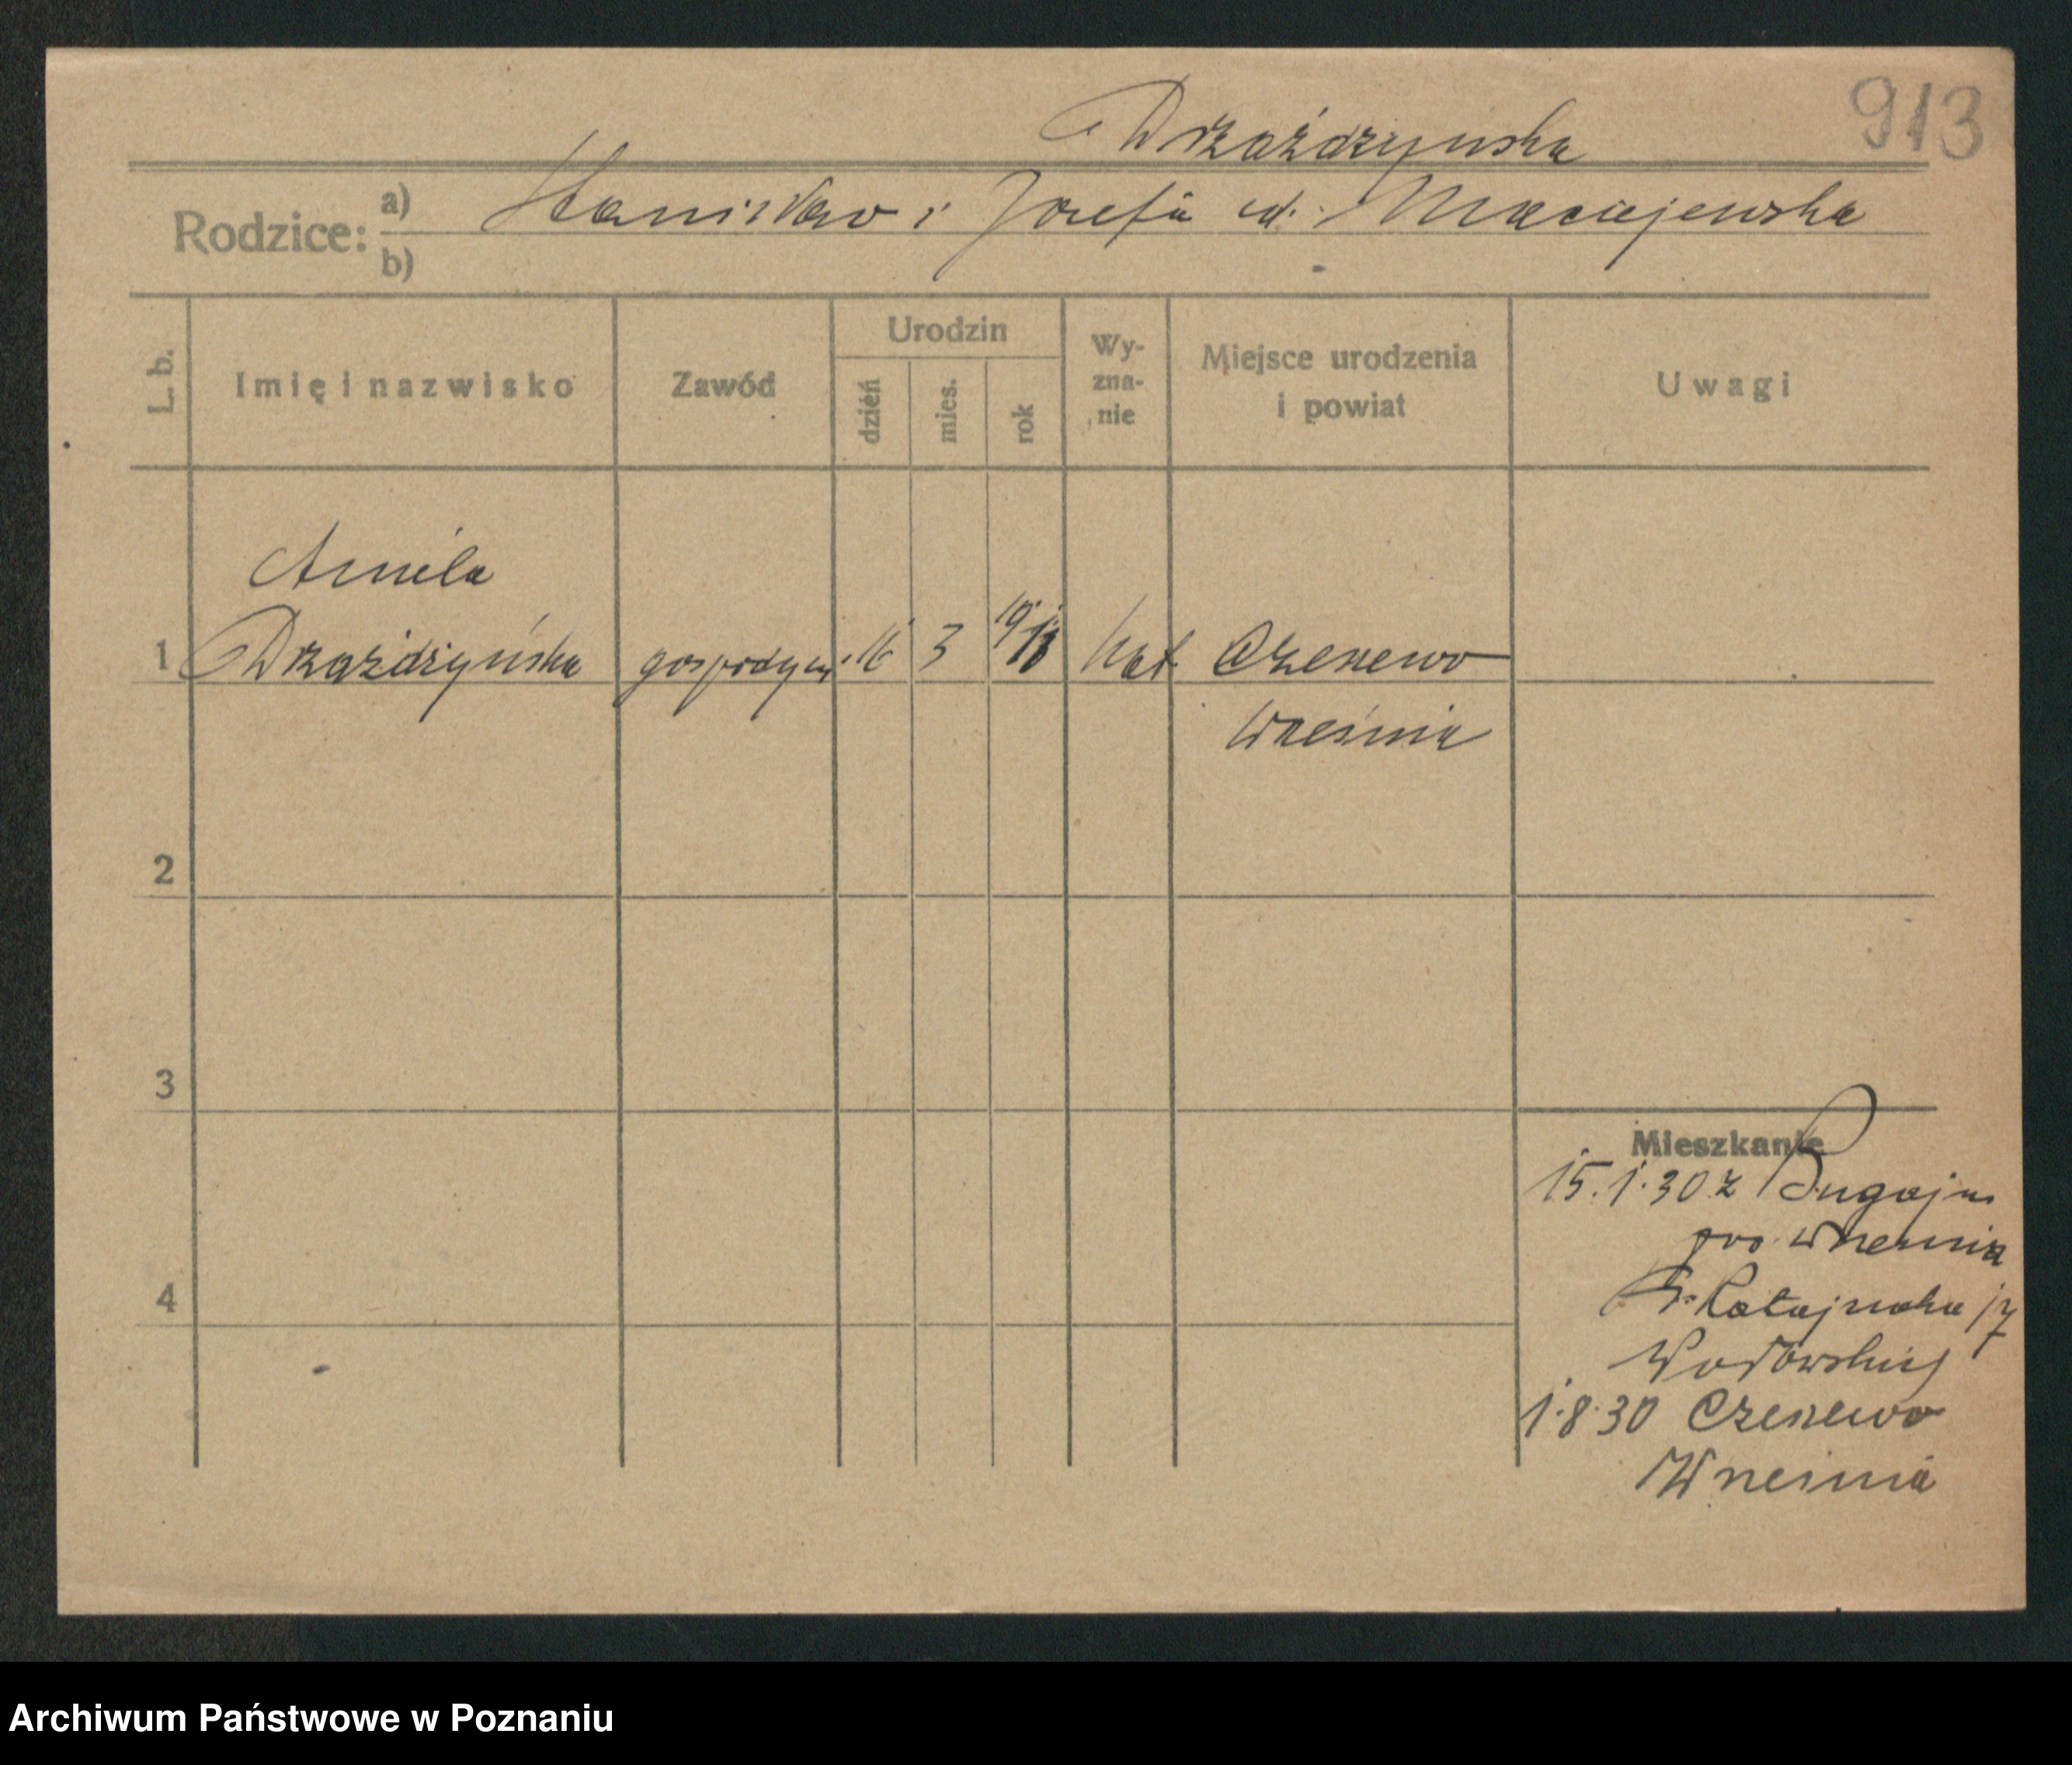 913
Drzażdzynska
Rodzice: a) Stanisław i Józefa ur. Maciejewska
b)
L. b. Imię i nazwisko Zawód Urodzin dzień mies. rok Wyznanie Miejsce urodzenia i powiat Uwagi
Aniela
1 Drzażdżyńska gospodyni 16 3 19 Kat Czeszewo
Września
2
3
Mieszkanie
15.1.30 z Bugaju
pow Września
4
Ratajczaka 17
1.8.30 Czeszewo
Września
Archiwum Państwowe w Poznaniu